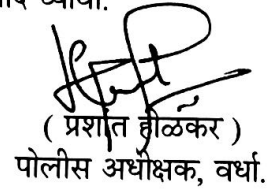 द्यावा.
( प्रशांत होळकर )
पोलीस अधीक्षक, वर्धा.